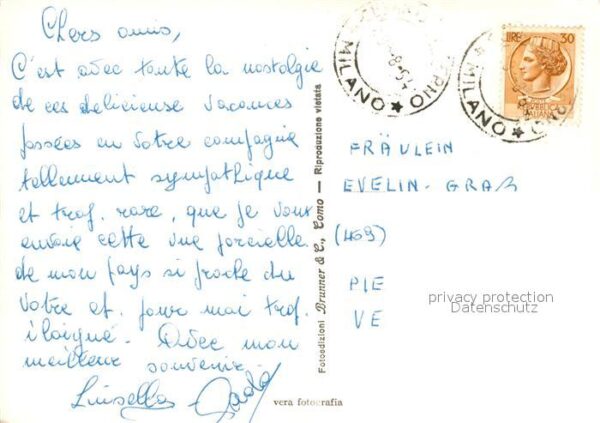 Chers amis,
C'est avec toute la nostalgie
de ces delicieuse vacances
passées en votre compagnie
tellement sympathique
et trop rare, que je vous
envoie cette vue parcielle
de mon pays si proche du
votre et pour moi trop
éloigné. Avec mon
meilleur souvenir
Luisella
LIRE 30
MILANO
MILANO
FRÄULEIN
EVELIN-GRAß
(409)
PIE
VE
privacy protection
Datenschutz
Fotoedizioni Brunner & C., Como — Riproduzione vietata
vera fotografia